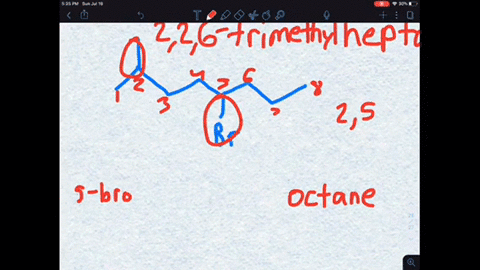 5:35 PM Sun Jul 19
30%
2,2,6-trimethylhepta
1 2 3 4 5 6 7 8
Br
2,5
5-bro
octane